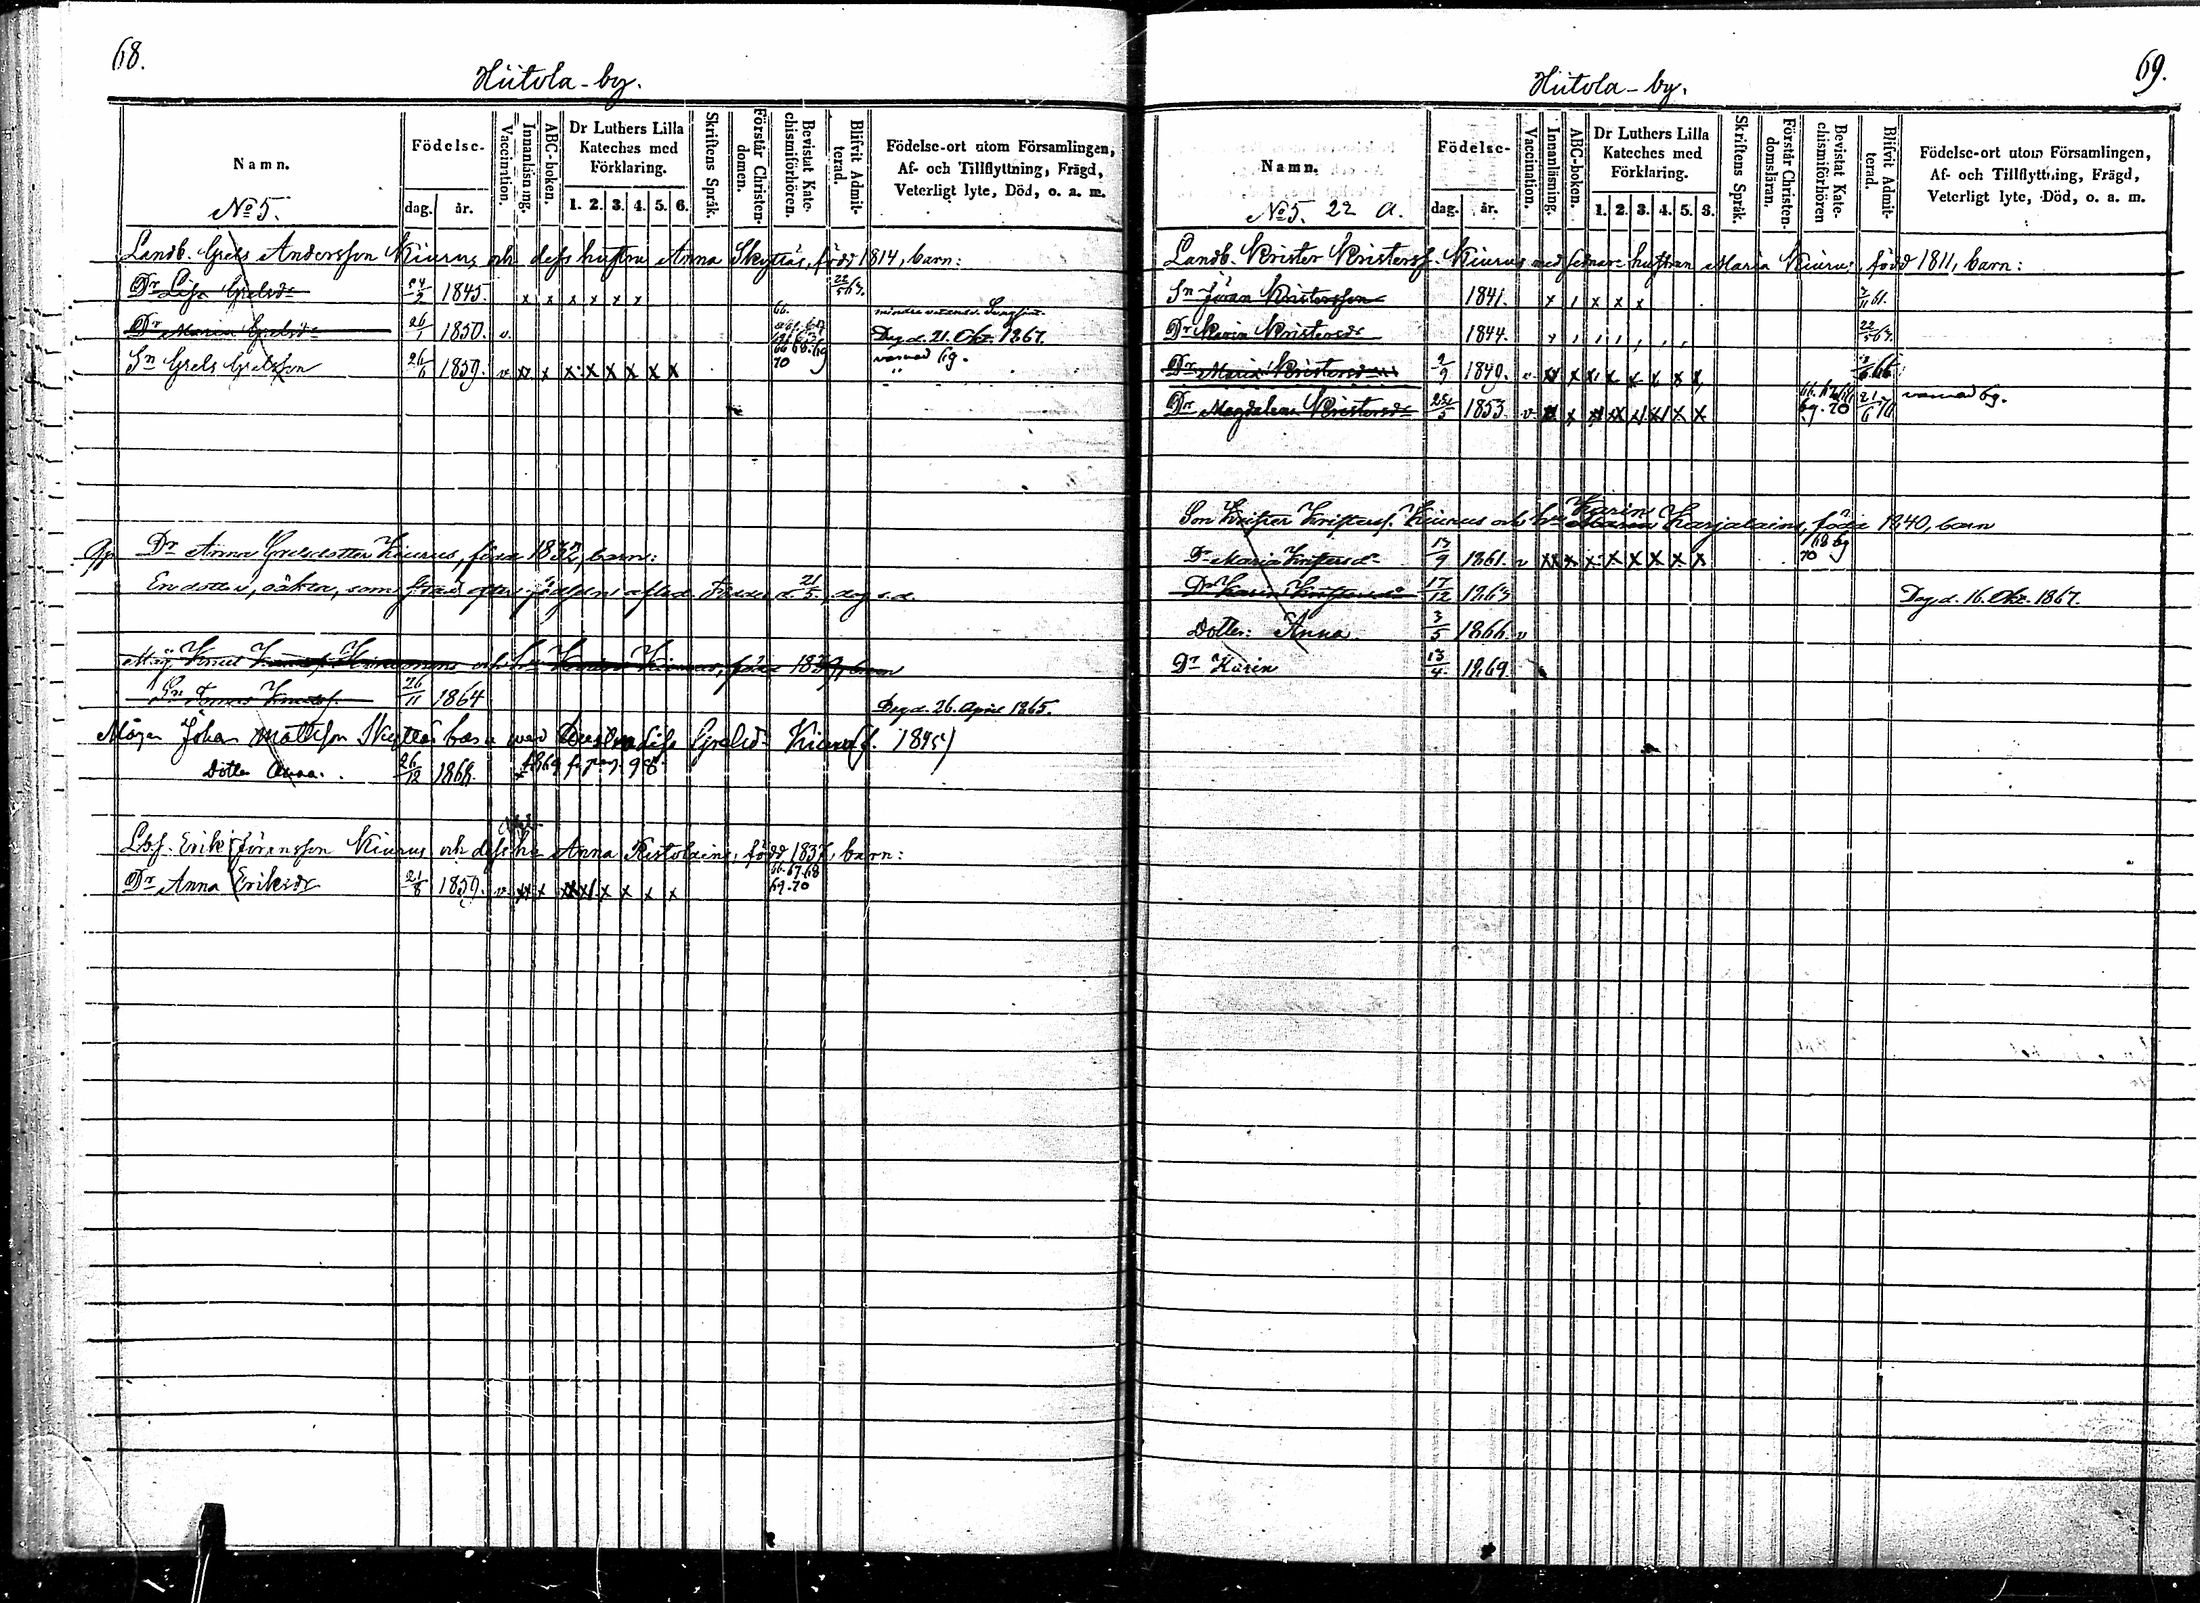 68.
Hiitola-by.
Namn.
Födelse-
dag.
år.
Vaccination.
Innanläsning.
ABC-boken.
Dr Luthers Lilla
Kateches med
Förklaring.
1. 2. 3. 4. 5. 6.
Skriftens Språk.
Förstår Christen-
domen.
Bevistat Kate-
chismiförhören.
Blifvit Admit-
terad.
Födelse-ort utom Församlingen,
Af- och Tillflyttning, Frägd,
Veterligt lyte, Död, o. a. m.
No 5.
Landb. Grels Andersson Kiurus och dess hustru Anna Skyttäs, född 1814, barn:
Dr Lisa Grelsdr 24/2 1845. x x x x x x 22/5 63.
Dr Maria Grelsdr 26/1 1850. v. Deg d. 21. Okt. 1867.
Sn Grels Grelsson 26/6 1859. v xx x x x x x x x 66 68. 69 70
Dr Anna Grelsdotter Kiurus, född 1832, barn:
En dotter, oäkta, som strax efter födseln afled. Födde d. 21/5, dog s.d.
Måg Knut
Sn Tomas Knutss. 26/11 1864 Deg d. 26. April 1865.
Mågen Johan Mattsson Skyttäs Lisa Grelsd. Kiurus (f. 1845)
Dotter Anna. 26/12 1868. 1869 f. pag. 98
Lbf. Erik Jöransson Kiurus och dess hu Anna Ristolainen, född 1837, barn:
Dr Anna Eriksdr 21/8 1859. v xx x xx x x x x x 66. 67. 68 69. 70
69.
Hiitola-by.
Namn.
Födelse-
dag.
år.
Vaccination.
Innanläsning.
ABC-boken.
Dr Luthers Lilla
Kateches med
Förklaring.
1. 2. 3. 4. 5. 3.
Skriftens Språk.
Förstår Christen-
domsläran.
Bevistat Kate-
chismiförhören
Blifvit Admit-
terad.
Födelse-ort utom Församlingen,
Af- och Tillflyttning, Frägd,
Veterligt lyte, Död, o. a. m.
No 5. 22 a.
Landb. Krister Kristerss. Kiurus med sednare hustrun Maria Kiurus, född 1811, barn:
Sn Jöran Kristersson 1841. x x x x 61.
Dr Karin Kristersdr 1844. 22/5 63.
Dr Maria Kristersdr 2/9 1849. v x x x x x x x x 66.
Dr Magdalena Kristersdr 1853. v x x x x x x x x 69. 70 21/6 70
Karin
Son Krister Kristerss. Kiurus och hu Maria Karjalainen, född 1840, barn
Dr Maria Kristersd. 13/9 1861. v xx x x x x x x x 68 69 70
Dr Karin Kristersdr 17/12 1863 Deg d. 16. Okt. 1867.
Dotter: Anna. 3/5 1866. v
Dr Karin 13/4. 1869.